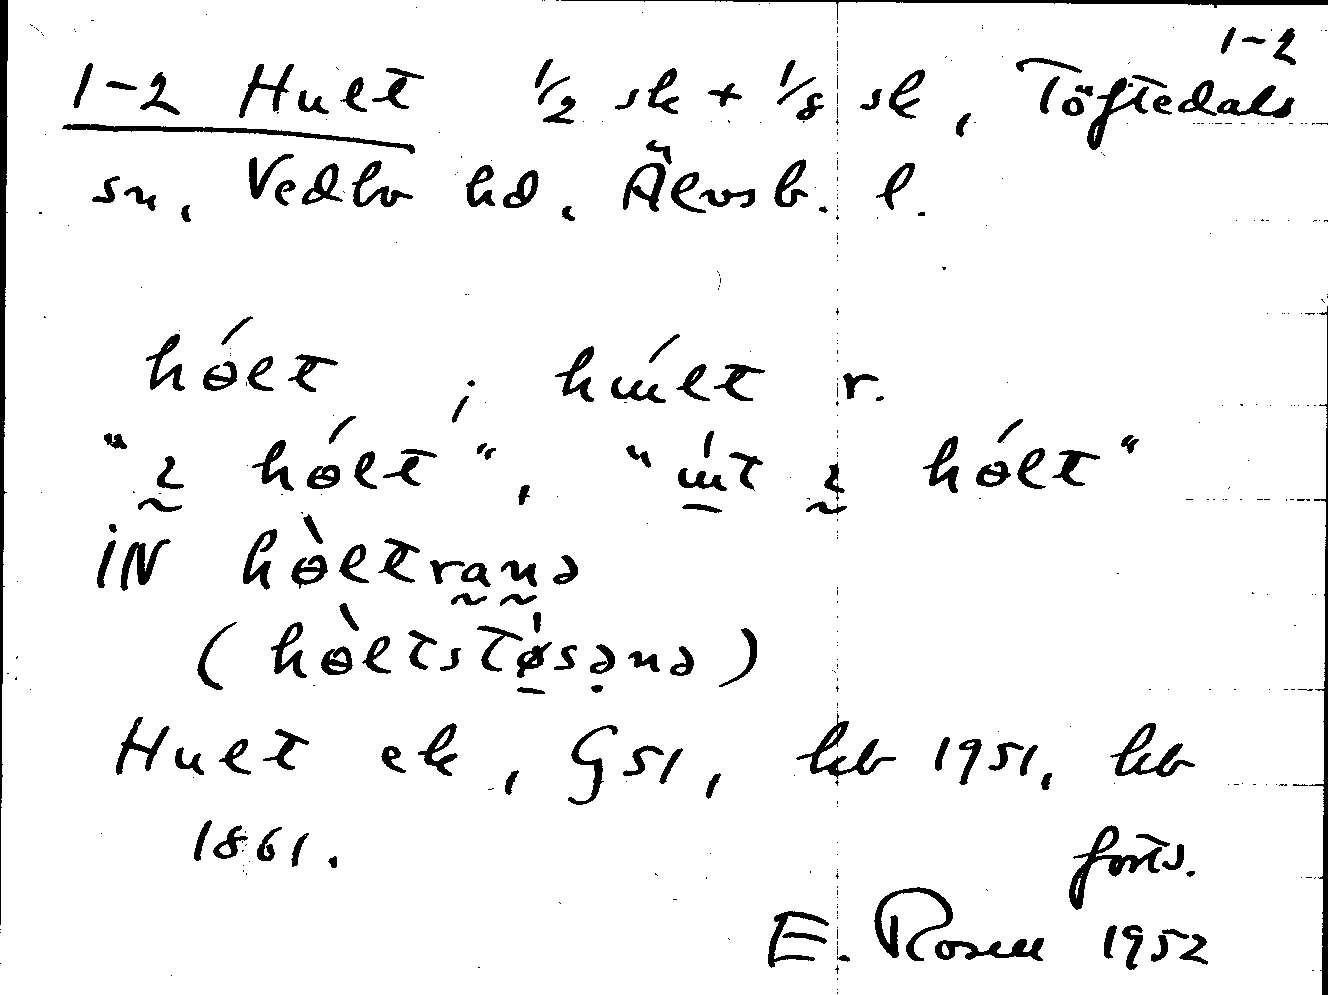 1-2
1-2 Hult ½ sk + ⅛ sk, Töftedals
sn, Vedbo hd, Älvsb. l.
hɵ́lt ; hɯ́lt r.
"ɩ̰ hɵ́lt", "ɯ̱́t ɩ̰ hɵ́lt"
iN hɵ̀ltra̰n̰ə
(hɵ̀ltstø̱̍sə̣nə)
Hult ek, G 51, kb 1951, kb
1861.
forts.
E. Rosell 1952